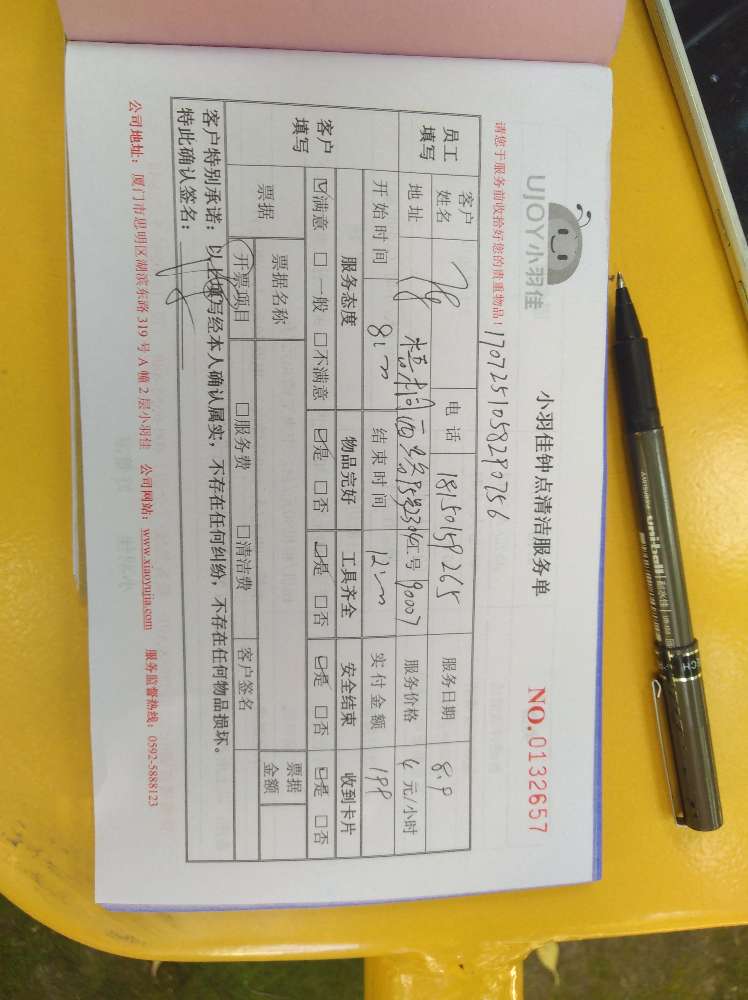 UJOY小羽佳
小羽佳钟点清洁服务单
NO.0132657
请您于服务前收拾好您的贵重物品！
1707251058290756
员工填写 客户姓名 电话 18150159265 服务日期 8.9
地址 工号 90007 服务价格 4元/小时
开始时间 8:00 结束时间 12:00 实付金额 199
客户填写 服务态度 物品完好 工具齐全 安全结束 收到卡片
☑满意 □一般 □不满意 ☑是 □否 ☑是 □否 ☑是 □否 ☑是 □否
票据 票据名称 票据金额
开票项目 □服务费 □清洁费 客户签名
客户特别承诺：以上填写经本人确认属实，不存在任何纠纷，不存在任何物品损坏。
特此确认签名：
公司地址：厦门市思明区湖滨东路 319 号 A 幢 2 层小羽佳 公司网站：www.xiaoyujia.com 服务监督热线：0592-5888123
uni-ball